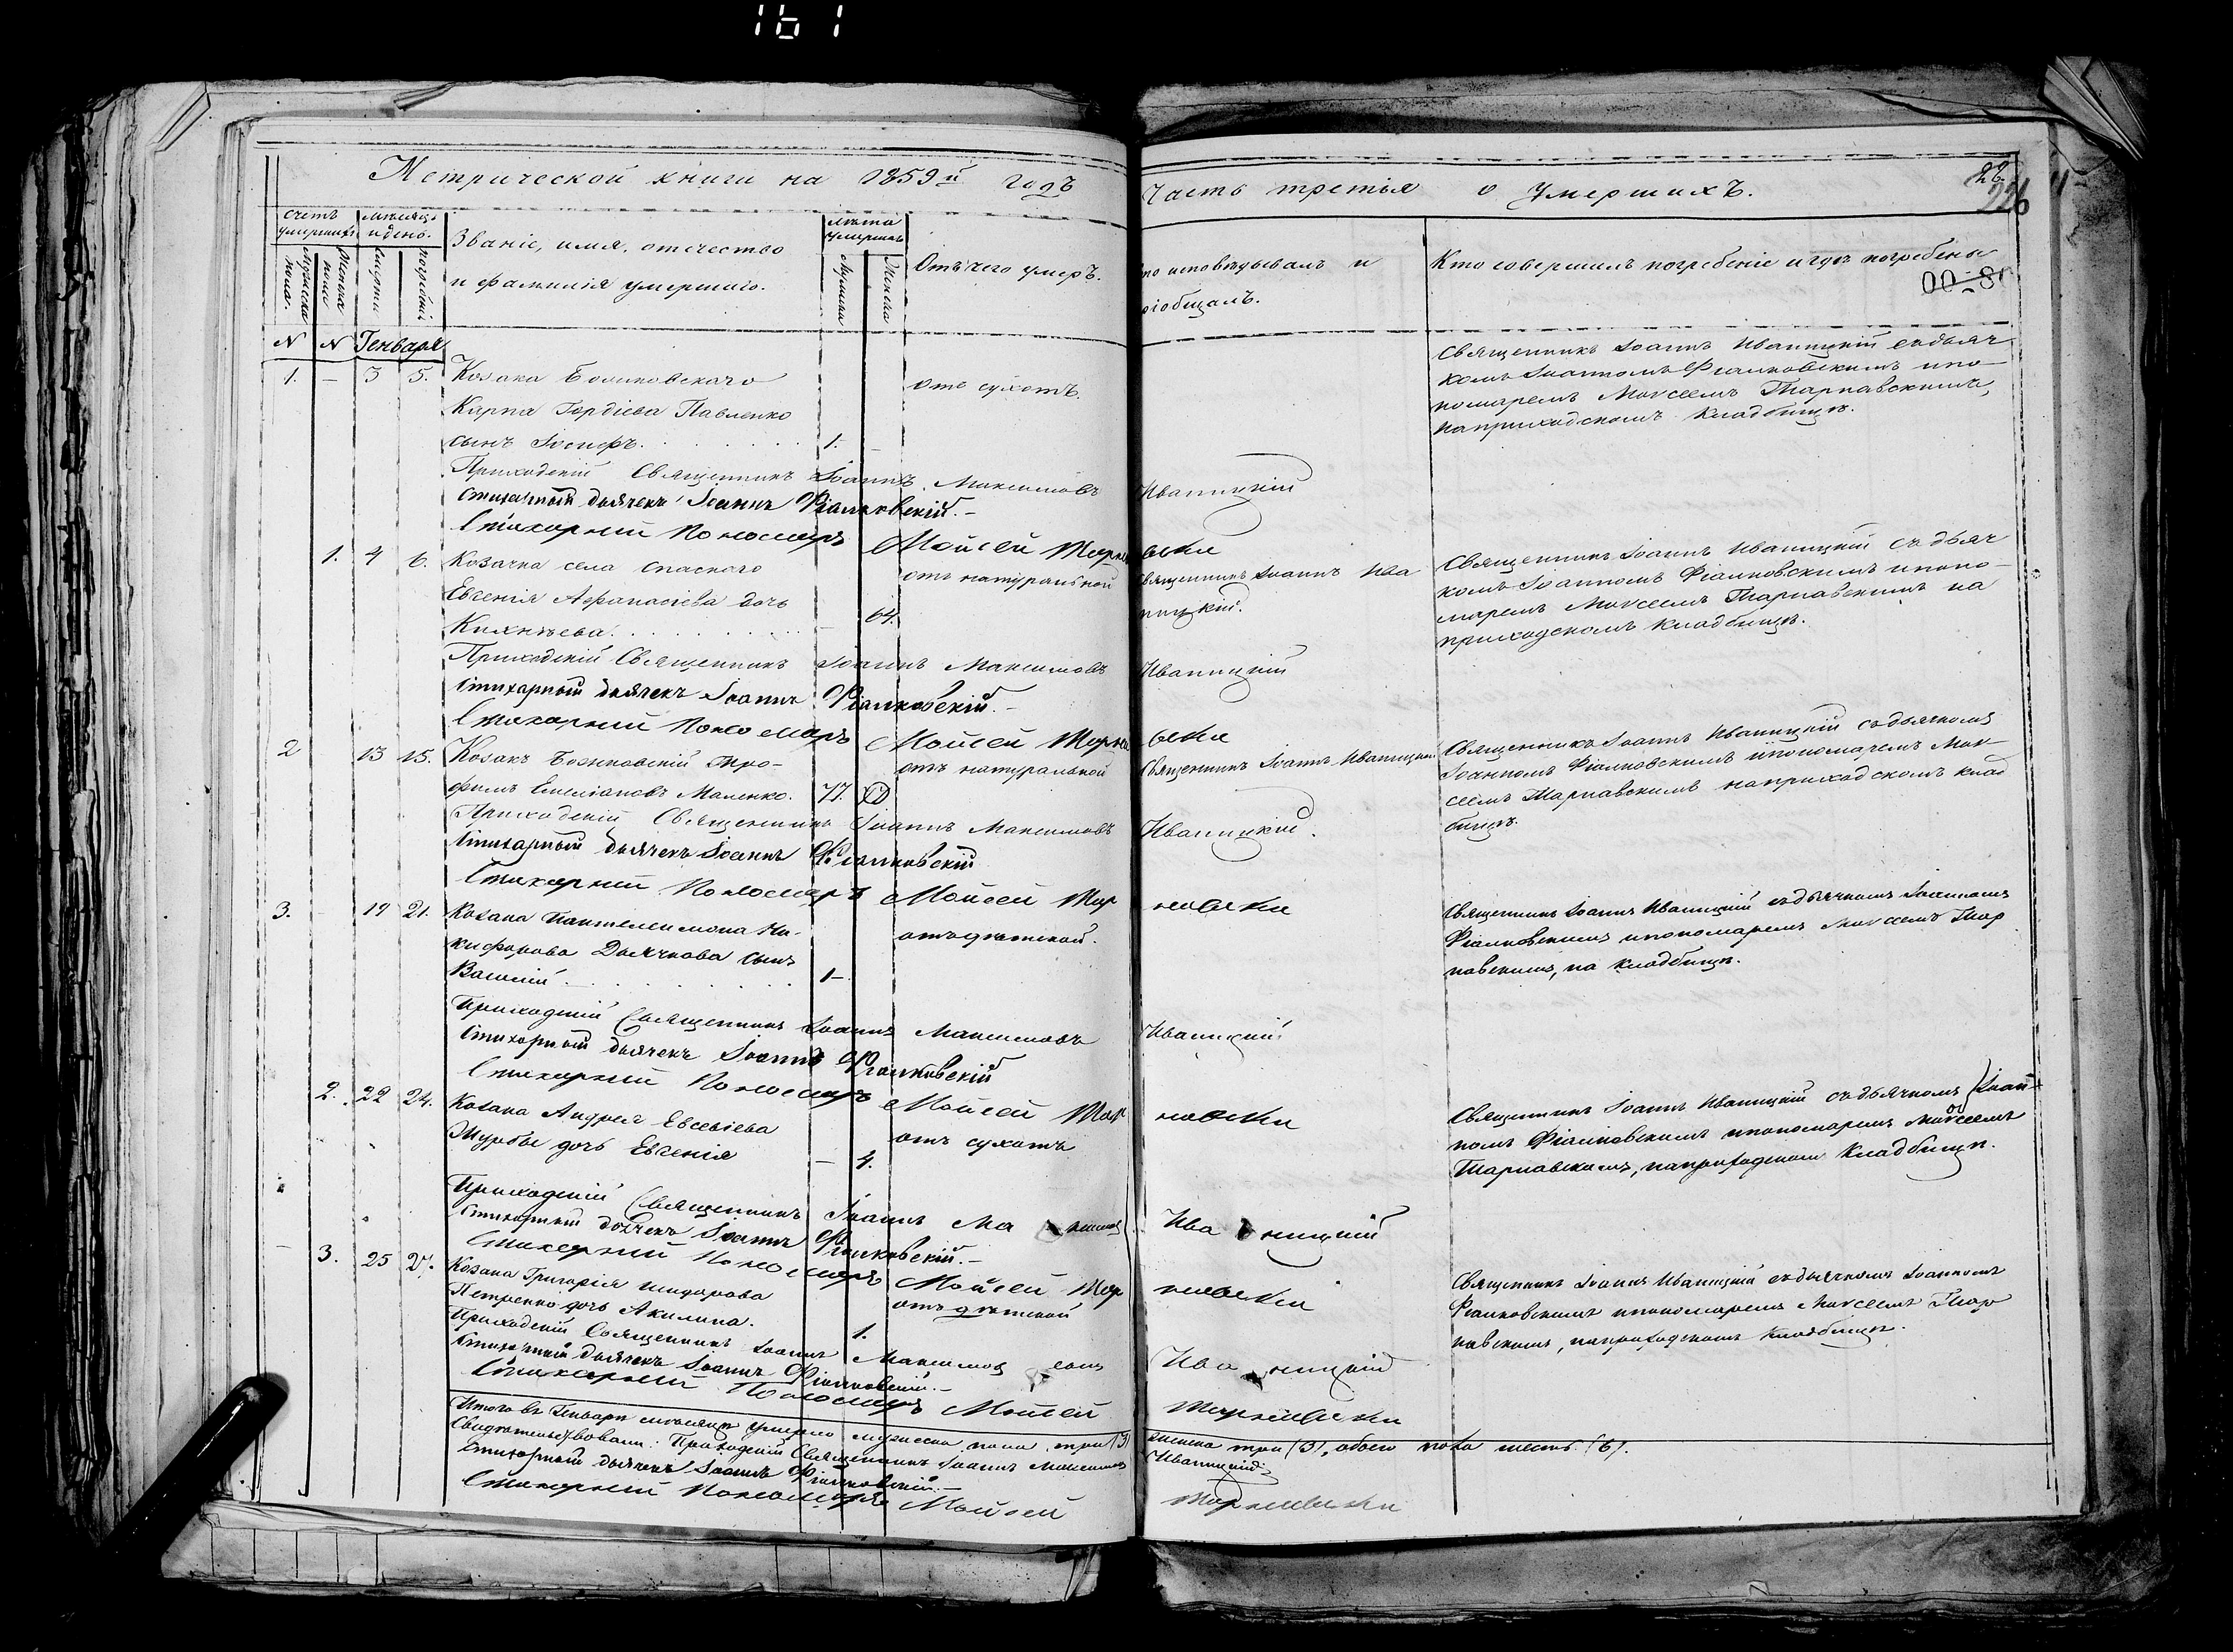 161
Метрической книги на 1859й годъ
Часть третія о умершихъ.
226
счетъ умершихъ
мѣсяцъ и день.
Званіе, имя, отчество
и фамилія умершаго.
лѣта умершаго
Отъ чего умеръ.
Кто исповѣдывалъ и
пріобщалъ.
Кто совершилъ погребеніе и гдѣ погребены
Мужеска пола.
Женска пола
смерти
погребенія
Мужеска
Женска
N N Генваря
1. – 3 5. Козака
Карпа Гордіева Павленко
сынъ Іосифъ. 1. –
отъ сухотъ.
Священникъ Іоаннъ Иваницкій съ дьяч
комъ Іоанномъ Фіалковскимъ и по-
номаремъ Моисеемъ Тарнавскимъ,
на приходскомъ кладбищѣ.
Приходскій Священникъ Іоаннъ Максимовъ Иваницкій
Стихарный дьячекъ Іоаннъ Фіалковскій. –
Стихарний Пономаръ Мойсей Тарнавски
1. 4 6. Козачка села Спаского
Евгенія Афанасіева дочь
64.
отъ натуральной
Священникъ Іоаннъ Ива
ницкій.
Священникъ Іоаннъ Иваницкій съ дьяч
комъ Іоанномъ Фіалковскимъ и поно-
маремъ Моисеемъ Тарнавскимъ на
приходскомъ кладбищѣ.
Приходскій Священникъ Іоаннъ Максимовъ Иваницкій
Стихарный дьячекъ Іоаннъ Фіалковскій. –
Стихарний Пономаръ Мойсей Тарнавски
2 13 15. Козакъ Тро-
фимъ Емеліановъ Маленко. 77.
отъ натуральной
Священникъ Іоаннъ Иваницкій
Священникъ Іоаннъ Иваницкій съ дьячкомъ
Іоанномъ Фіалковскимъ и пономаремъ Мои-
сеемъ Тарнавскимъ на приходскомъ клад
бищѣ.
Приходскій Священникъ Іоаннъ Максимовъ Иваницкій.
Стихарный дьячекъ Іоаннъ Фіалковскій
Стихарний Пономаръ Мойсей Тарнавски
3. – 19 21. Козака Пантелеимона Ни-
кифорова Дьячкова сынъ
Василій 1 –
отъ дѣтской.
Священникъ Іоаннъ Иваницкій съ дьячкомъ Іоанномъ
Фіалковскимъ и пономаремъ Моисеемъ Тар
навскимъ, на кладбищѣ.
Приходскій Священникъ Іоаннъ Максимовъ Иваницкій
Стихарный дьячекъ Іоаннъ Фіалковскій
Стихарний Пономаръ Мойсей Тарнавски
2. 22 24. Козака Андрея Евсевіева
Журбы дочь Евгенія – 4.
отъ сухотъ
Священникъ Іоаннъ Иваницкій съ дьячкомъ Іоан-
номъ Фіалковскимъ и пономаремъ Моисеемъ
Тарнавскимъ, на приходскомъ кладбищѣ.
Приходскій Священникъ Іоаннъ Максимовъ Иваницкій
Стихарный дьячекъ Іоаннъ Фіалковскій. –
Стихарний Пономаръ Мойсей Тарнавски
– 3. 25 27. Козака Григорія
Петренко дочь Акилина. 1.
отъ дѣтской
Священникъ Іоаннъ Иваницкій съ дьячкомъ Іоанномъ
Фіалковскимъ и пономаремъ Моисеемъ Тар
навскимъ, на приходскомъ кладбищѣ.
Приходскій Священникъ Іоаннъ Максимовъ Иваницкій
Стихарный дьячекъ Іоаннъ Фіалковскій. –
Стихарний Пономаръ Мойсей Тарнавски
Итого въ Генварѣ мѣсяцѣ умерло мужеска пола три (3) женска три (3), обоего пола шесть (6).
Свидѣтельствовали: Приходскій Священникъ Іоаннъ Максимовъ Иваницкій
Стихарный дьячекъ Іоаннъ Фіалковскій. –
Стихарний Пономаръ Мойсей Тарнавски